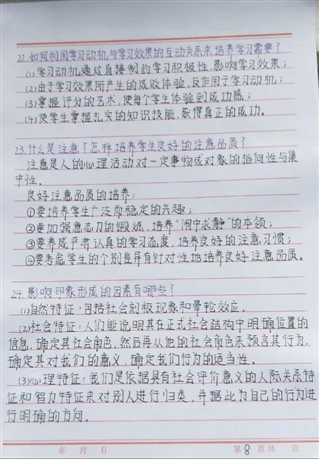 22.如何利用学习动机与学习效果的互动关系来培养学习需要?
(1)学习动机通过直接制约学习积极性,影响学习效果;
(2)由于学习效果所产生的成败体验,反作用于学习动机;
(3)掌握评分的艺术,使每个学生体验到成功感;
(4)使学生掌握扎实的知识技能,获得真正的成功。
23.什么是注意?怎样培养学生良好的注意品质?
注意是人的心理活动对一定事物或对象的指向性与集
中性。
良好注意品质的培养:
①要培养学生广泛而稳定的兴趣;
②要加强意志力的锻炼,培养"闹中求静"的本领;
③要养成严肃认真的学习态度,培养良好的注意习惯;
④要考虑学生的个别差异有针对性地培养良好注意品质。
24.影响印象形成的因素有哪些?
(1)自然特征:包括社会刻板现象和晕轮效应。
(2)社会特征:人们能说明其在正式社会结构中明确位置的
信息,确定其社会角色,然后再从他的社会角色来预言其行为,
确定其对我们的意义,确定我们行为的适当性。
(3)心理特征:我们是依据具有社会评价意义的人际关系特
征和智力特征来对别人进行归类,并据此为自己的行为进
行明确的方向。
年 月 日
第 8 页